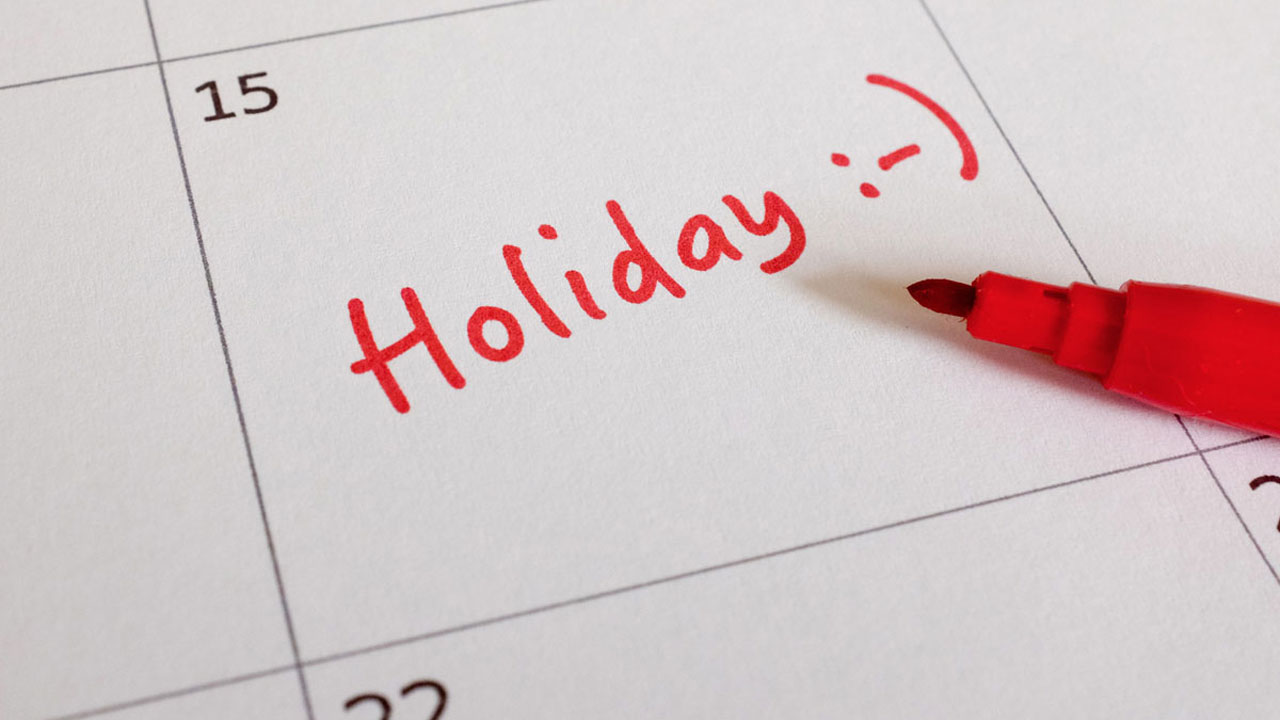 15
Holiday :-)
22